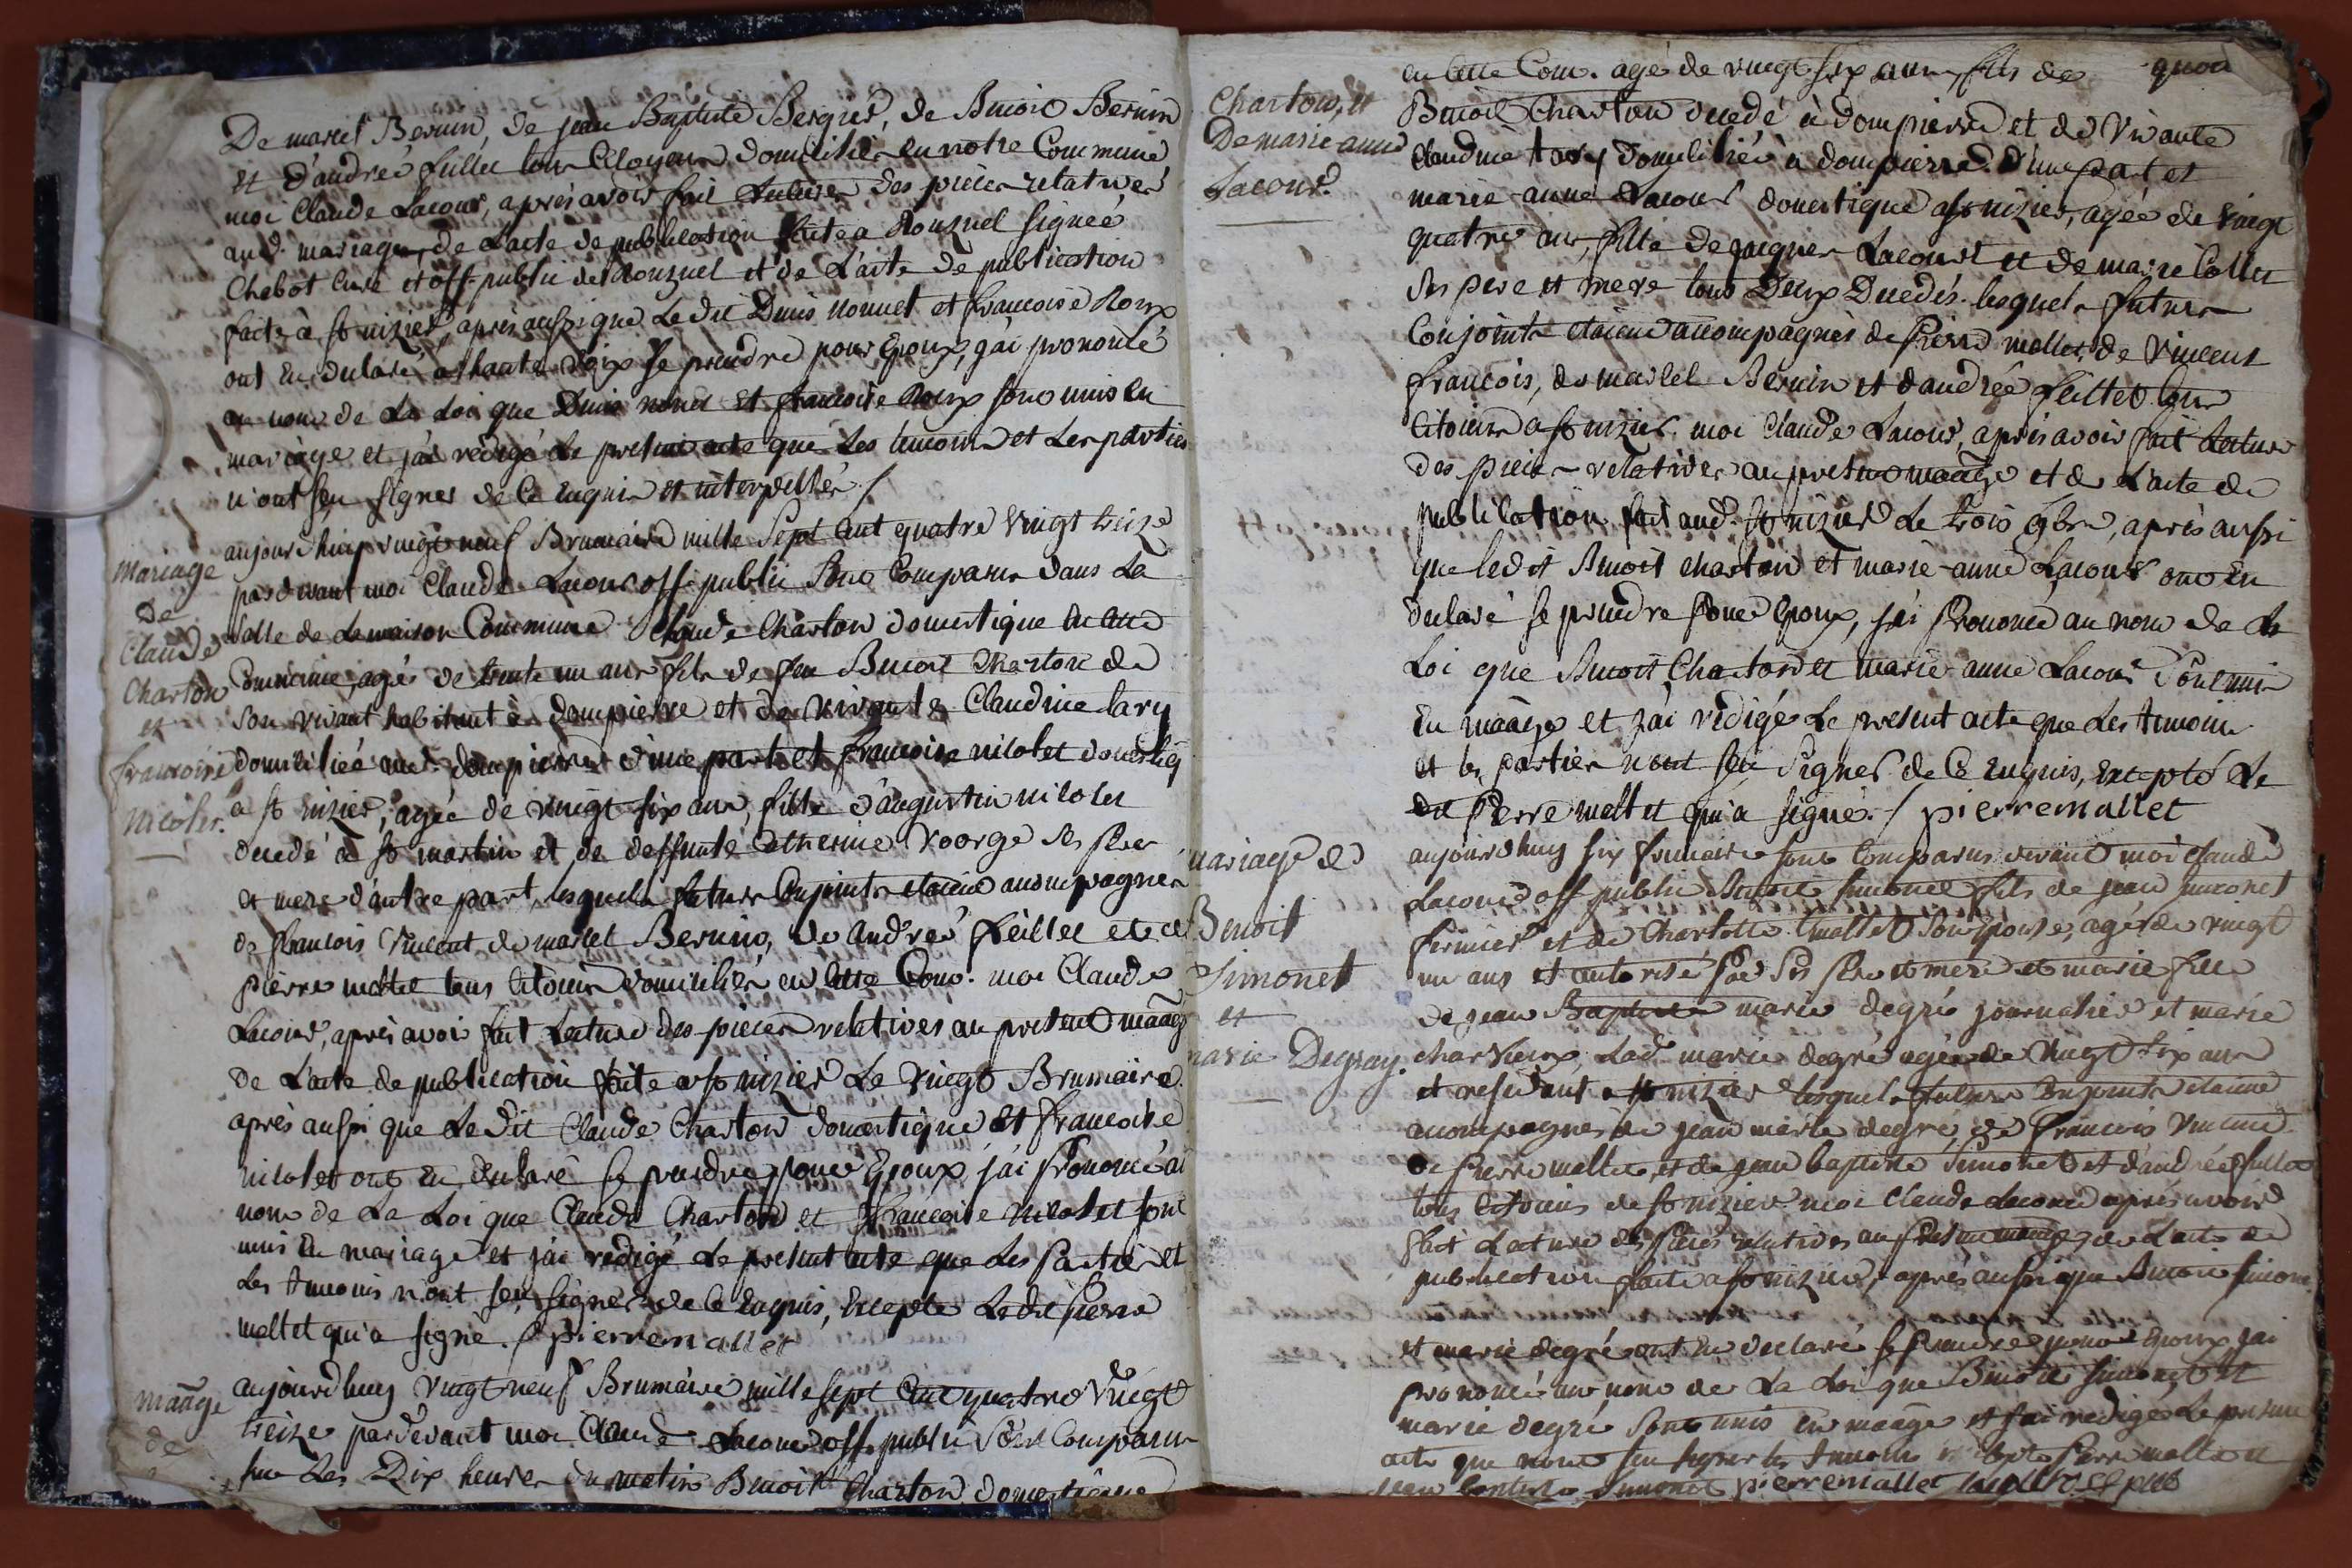 De marcel Bernin, de jean Baptiste Berger, de Benoit Bernin
et d'andrée feillet tous Citoyens domiciliés en notre Commune
moi Claude Lacour, après avoir fait lecture des pièces relatives
aud. mariage, de L'acte de publication faite a Ronzuel signée
Chabot Curé et off. public de Ronzuel et de L'acte de publication
faite à st nizier, après aussi que Le dit Denis nonnet et francoise Roux
ont eu declaré a haute voix se prendre pour Epoux, j'ai prononcé
au nom de La Loi que Denis et francoise Roux sont unis En
mariage et j'ai rédigé Le présent acte que Les temoins et Les parties
n'ont seu signer de Ce Enquis et interpellés /
Mariage
De
Claude
Charton
et
francoise
Nicolet.
aujourd'huy vingt neuf Brumaire mille Sept Cent quatre Vingt treize
pardevant moi Claude Lacour off. public Sont Comparus dans La
Salle de La maison Commune Claude Charton domestique En Cette
Commune, agés de trente un ans fils de feu Benoit Charton de
Son vivant habitant à dompierre et de vivante Claudine tary
domiciliée aud. dompierre d'une part et francoise nicolet domestiq
a st nizier, agée de vingt six ans, fille d'augustin nicolet
decedé à st martin et de deffunte Catherine Voorge Ses Père
et mere d'autre part, lesquels futurs Conjoints etoient accompagnés
de francois Vincent de marcel Bernin, de andrée feillet et de
pierre mallet tous Citoiens domiciliés en Cette Com. moi Claude
Lacour, après avoir fait Lecture des pièces relatives au présent maage
de L'acte de publication faite a st nizier Le Vingt Brumaire.
après aussi que Le Dit Claude Charton domestique Et francoise
Nicolet ont eu declaré se prendre pour Epoux, j'ai prononcé au
nom de La Loi que Claude Charton et francoise Nicolet sont
unis En mariage et j'ai redigé Le present acte que Les Parties et
Les temoins n'ont seu signer de Ce Enquis, Excepté Le dit pierre
mallet qui a signé. / pierre mallet
maage
de
aujourdhuy vingt neuf Brumaire mille sept Cent quatre Vingt
treize pardevant moi Claude Lacour off. public Sont Comparus
sur Les Dix heures du matin Benoit Charton domestique
Charton, et
De marie anne
Lacour.
en Cette Com. agé de vingt six ans, fils de
Benoit Charton decedé à dompierre et de Vivante
Claudine tary domiciliée à dompierre. d'une part et
marie-anne Lacour domestique a st nizier, agée de Vingt
quatre ans, fille de Lacour et de marie Collet
Ses père et mere tous Deux Decedés. lesquels futurs
Conjoints etoient accompagnés de Pierre mallet, de Vincent
francois, de marcel Bernin et d'andrée feillet tous
Citoiens a st nizier. moi Claude Lacour, après avoir fait Lecture
des pièces relatives au present maage et de L'acte de
publication fait aud. st nizier Le trois 9bre, après aussi
que ledit Benoit Charton et marie-anne Lacour ont Eu
declaré se prendre pour Epoux, j'ai Prononcé au nom de La
Loi que Benoit Charton et marie anne Lacour Sont unis
En maage et j'ai rédigé Le present acte que Les temoins
et les parties n'ont seu Signer de Ce Enquis, Excepté Le
dit Pierre mallet qui a signé. / pierre mallet
mariage de
Benoit
Simonet
et
marie Degray.
aujourdhuy six frimaire sont Comparus devant moi Claude
Lacour off public Benoit Simonet fils de jean Simonet
fermier et de Charlotte mallet Son Epouse, agés de vingt
un ans et autorisé par Ses Père et mere et marie fille
de jean marie degré journalier et marie
Charvieux, Lad. marie degré agée de Vingt six ans
et residant a st nizier lesquels futurs Conjoints etoient
accompagnés de jean marie degré, de francois Vincent
de Pierre mallet, et de jean baptiste Simonet et d'andrée feillet
tous Citoiens de st nizier moi Claude Lacour après avoir
fait Lecture des Pièces relatives au présent maage, de L'acte de
publication faite a st nizier, après aussi que Benoit Simonet
et marie degré ont Eu declaré se Prendre pour Epoux j'ai
prononcé au nom de La Loi que Benoit Simonet et
marie degré Sont unis en maage et j'ai redigé Le present
acte que n'ont seu signer les temoins Pierre mallet et
jean baptiste Simonet pierre mallet